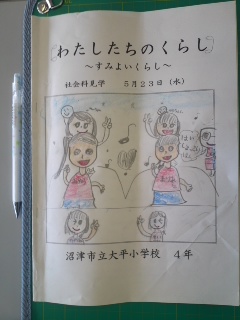 わたしたちのくらし
～すみよいくらし～
社会科見学　５月２３日（水）
沼津市立大平小学校　４年